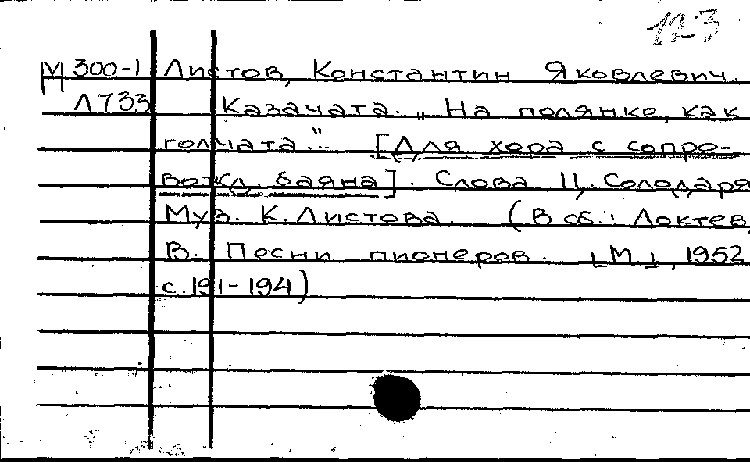 123
М 300-1 Листов, Константин Яковлевич.
Л733 Казачата. „На полянке, как
голчата." [Для хора с сопро-
вожд. баяна]. Слова Ц. Солодаря
Муз. К. Листова. (В сб.: Локтев,
В. Песни пионеров. [М], 1952
с. 191-194)